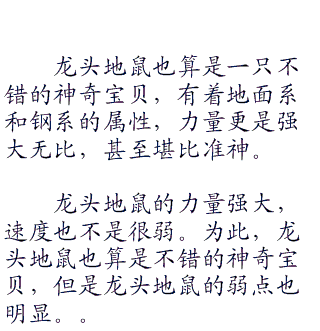 龙头地鼠也算是一只不
错的神奇宝贝，有着地面系
和钢系的属性，力量更是强
大无比，甚至堪比准神。
龙头地鼠的力量强大，
速度也不是很弱。为此，龙
头地鼠也算是不错的神奇宝
贝，但是龙头地鼠的弱点也
明显。。